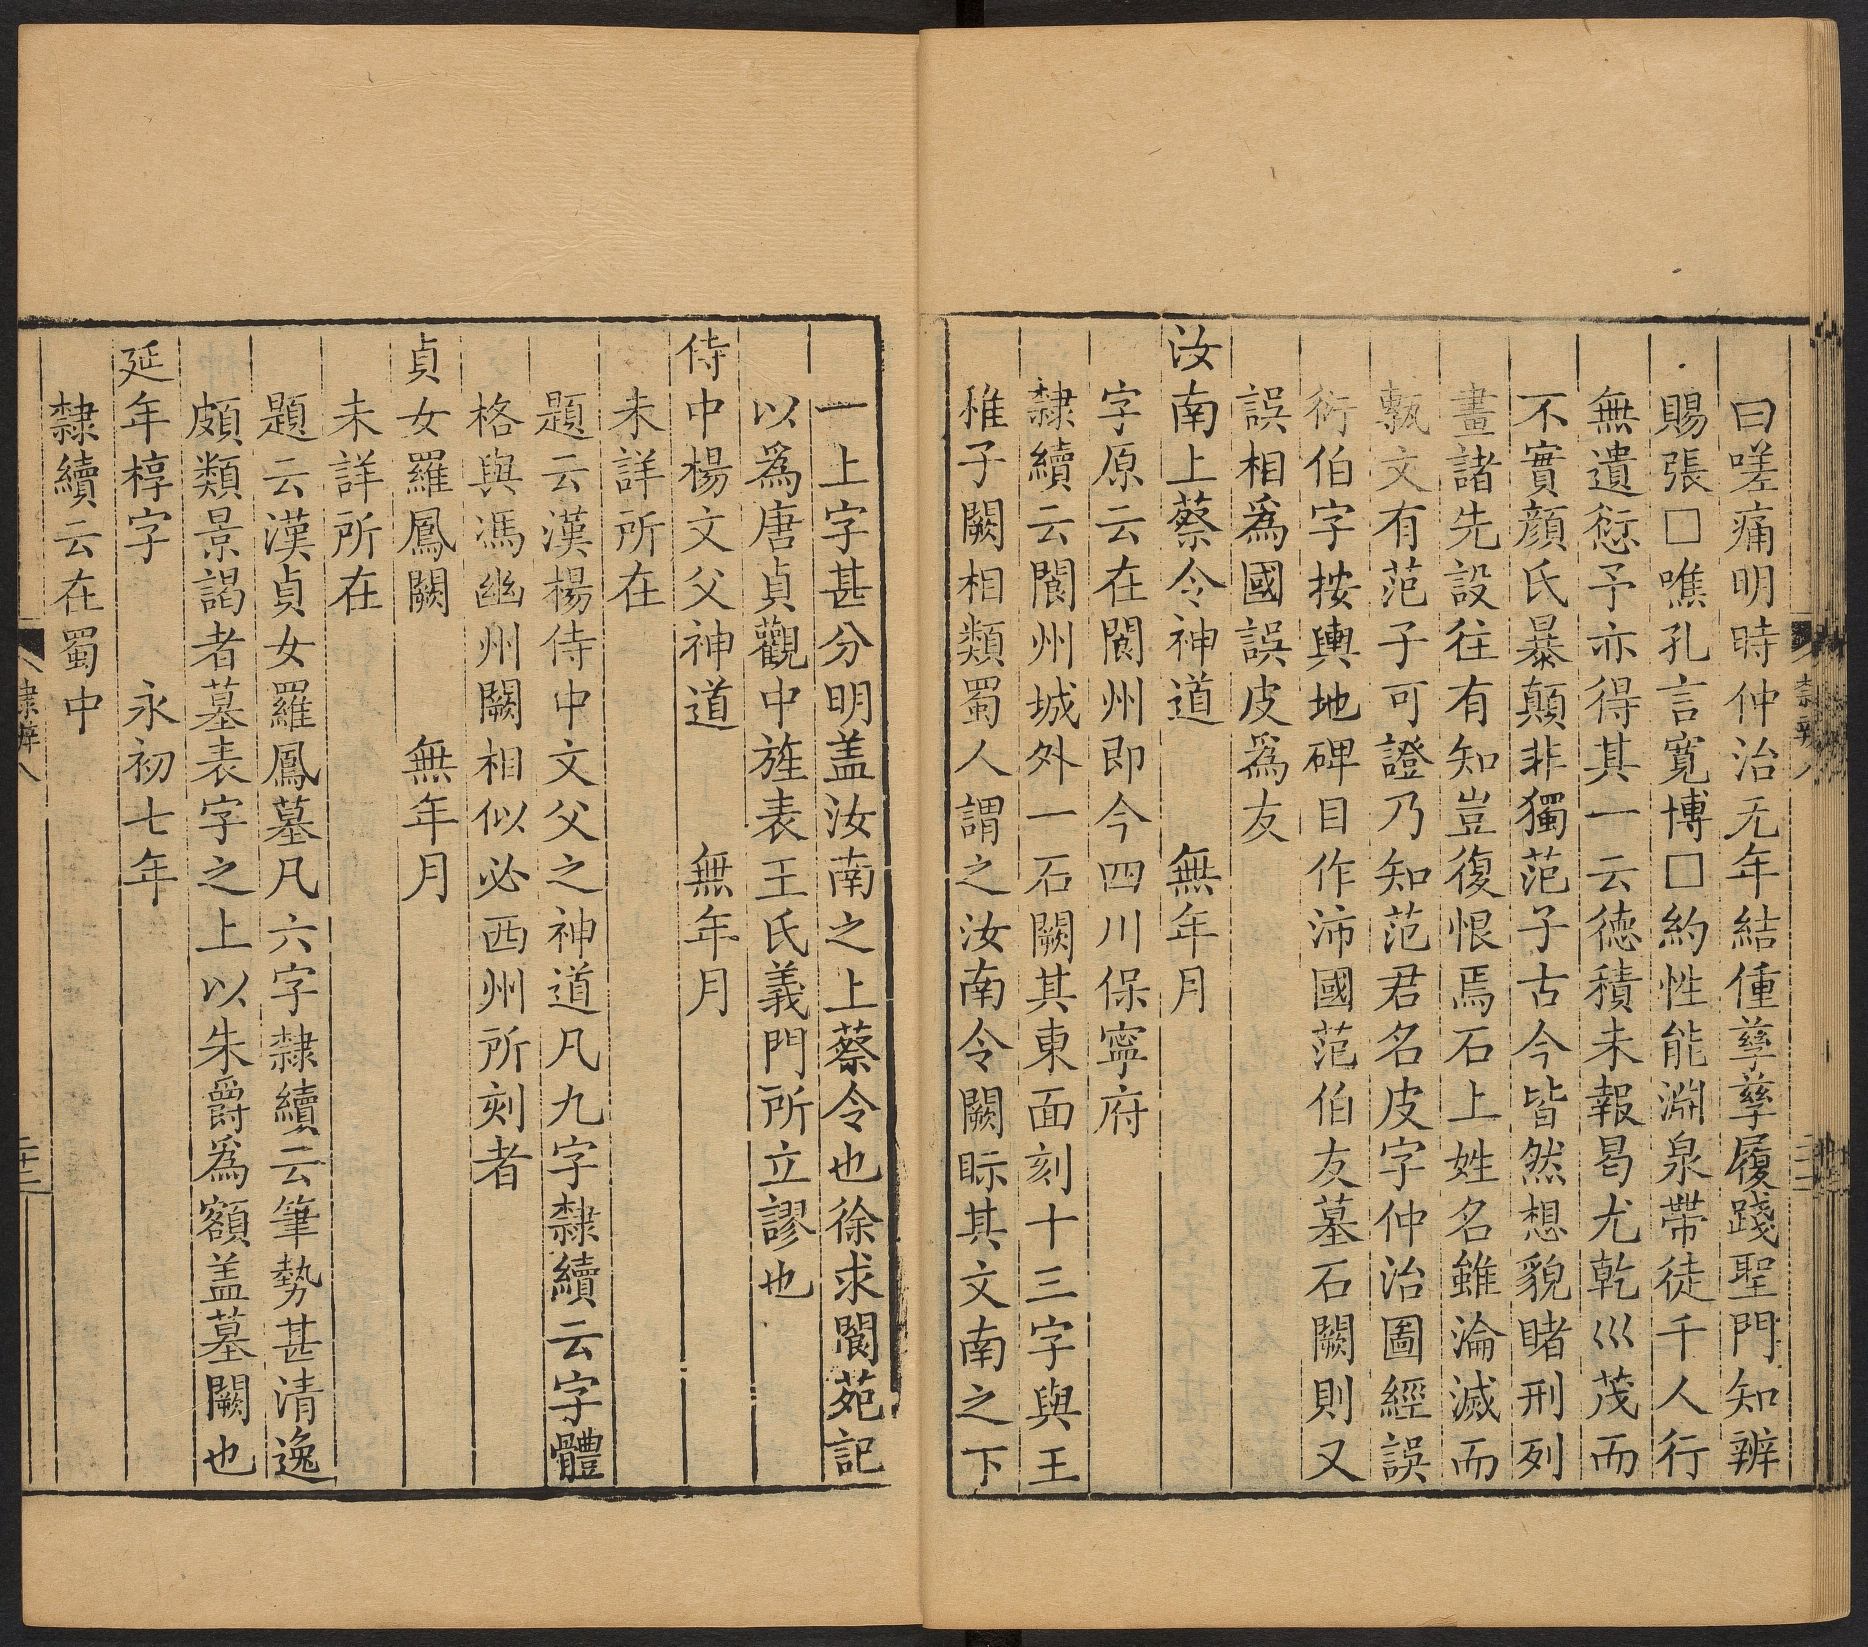 曰嗟痛明時仲治无年結偅孳孳履踐聖門知辨
賜張□噍孔言寬博□約性能淵泉帶徒千人行
無遺愆予亦得其一云德積未報曷尤乾巛茂而
不實顏氏暴顛非獨范子古今皆然想貌睹刑列
畫諸先設往有知豈復恨焉石上姓名雖淪滅而
甎文有范子可證乃知范君名皮字仲治圖經誤
衍伯字按輿地碑目作沛國范伯友墓石闕則又
誤相爲國誤皮爲友
汝南上蔡令神道　無年月
字原云在閬州即今四川保寧府
隸續云閬州城外一石闕其東面刻十三字與王
惟子闕相類蜀人謂之汝南令闕眎其文南之下
一上字甚分明盖汝南之上蔡令也徐求閬苑記
以爲唐貞觀中旌表王氏義門所立謬也
侍中楊文父神道　無年月
未詳所在
題云漢楊侍中文父之神道凡九字隸續云字體
格與馮幽州闕相似必西州所刻者
貞女羅鳳闕　無年月
未詳所在
題云漢貞女羅鳳墓凡六字隸續云筆勢甚清逸
頗類景謁者墓表字之上以朱爵爲額盖墓闕也
延年椁字　永初七年
隸續云在蜀中
隸辨八
二十二